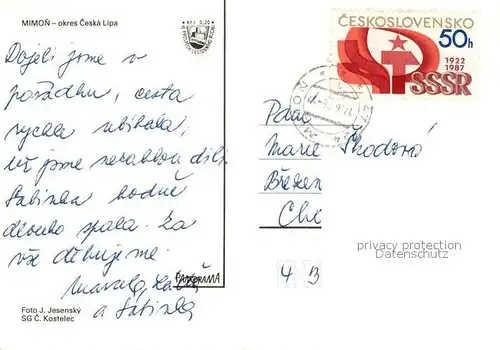 MIMOŇ – okres Česká Lípa
Kčs 0,20
Dojeli jsme v
pořádku, cesta
rychle ubíhala,
už jsme neradbou dili.
Sabinka hodně
dlouho spala. Za
vše děkujeme.
a Sabinka
PANORAMA
Foto J. Jesenský
SG Č. Kostelec
ČESKOSLOVENSKO
50h
1922
1987
SSSR
Paní
Marie Škodová
Březen
Che
privacy protection
Datenschutz
4 B